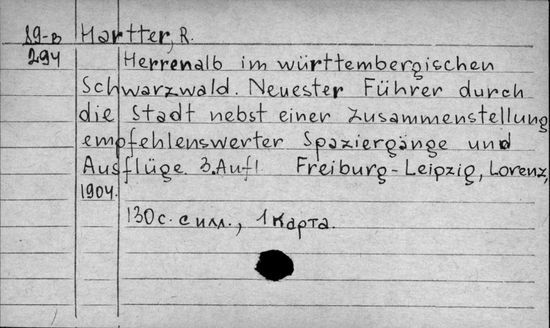 89-в Hartter, R.
294 Herrenalb im württembergischen
Schwarzwald. Neuester Führer durch
die Stadt nebst einer Zusammenstellung
empfehlenswerter Spaziergänge und
Ausflüge. 3. Aufl Freiburg-Leipzig, Lorenz,
1904.
130с. с илл., 1 карта.